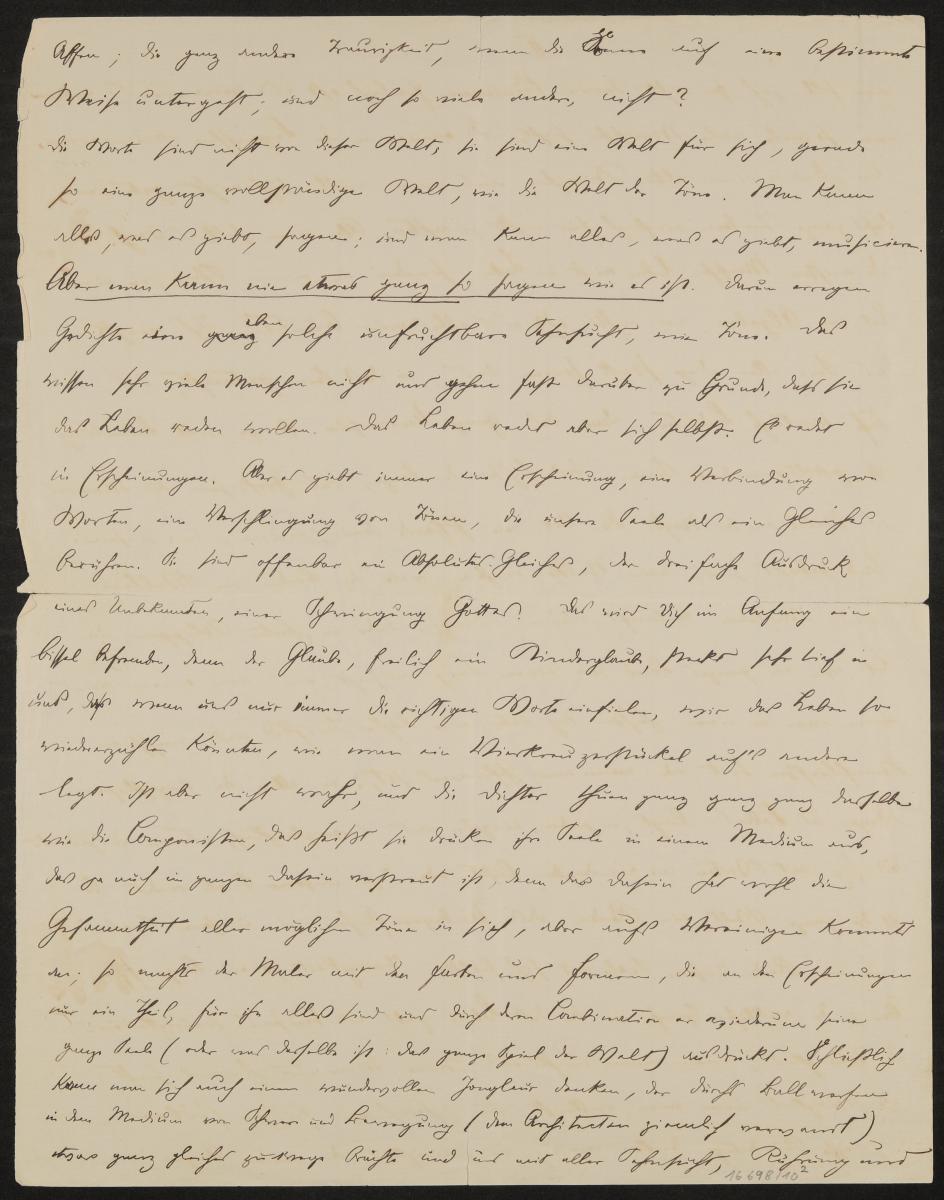 Affen; die ganz andere Traurigkeit, wenn die Sonne auf eine bestimmte
Weise untergeht; und noch so viele andere, nicht?
die Worte sind nicht von dieser Welt, sie sind eine Welt für sich, gerade
so eine ganze vollständige Welt, wie die Welt der Töne. Man kann
alles, was es giebt, sagen; und man kann alles, was es giebt, musicieren.
Aber man kann nie etwas ganz so sagen wie es ist. Darum erregen
Gedichte eine ganz eben solche unfruchtbare Sehnsucht, wie Töne. Das
wissen sehr viele Menschen nicht und gehen fast darüber zu Grunde, dass sie
das Leben reden wollen. Das Leben redet aber sich selbst. Es redet
in Erscheinungen. Aber es giebt immer eine Erscheinung, eine Verbindung von
Worten, eine Verschlingung von Tönen, die unsere Seele als ein Gleiches
berühren. Sie sind offenbar ein Absolutes-Gleiches, der dreifache Ausdruck
eines Unbekannten, einer Schwingung Gottes. Das wird Dich im Anfang ein
bissel befremden, denn der Glaube, freilich ein Kinderglaube, steckt sehr tief in
uns, dass wenn uns nur immer die richtigen Worte einfielen, wir das Leben so
wiedererzählen könnten, wie man ein Vierkreuzerstückel auf's andere
legt. Ist aber nicht wahr, und die Dichter thuen ganz ganz ganz dasselbe
wie die Componisten, das heißt sie drücken ihre Seele in einem Medium aus,
das ja auch im ganzen Dasein verstreut ist, denn das Dasein hat wohl die
Gesammtheit aller möglichen Töne in sich, aber aufs Vereinigen kommts
an; so machts der Maler mit den Farben und Formen, die an den Erscheinungen
nur ein Theil, für ihn alles sind und durch deren Combination er wiederum seine
ganze Seele (oder was dasselbe ist: das ganze Spiel der Welt) ausdrückt. Schließlich
kann man sich auch einen wundervollen Jongleur denken, der durchs Ballwerfen
in dem Medium von Schwere und Bewegung (dem Architecten ziemlich verwandt)
etwas ganz gleiches zuwege brächte und uns mit aller Sehnsucht, Rührung und
16698/10²